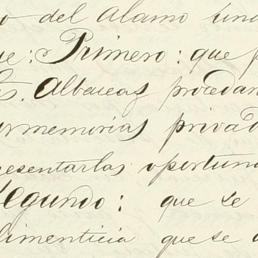 o del Alamo
ue: Primero: que
Albaceas procedan
memorias privad
presentarlas oportuna
Segundo: que se
limenticia que se